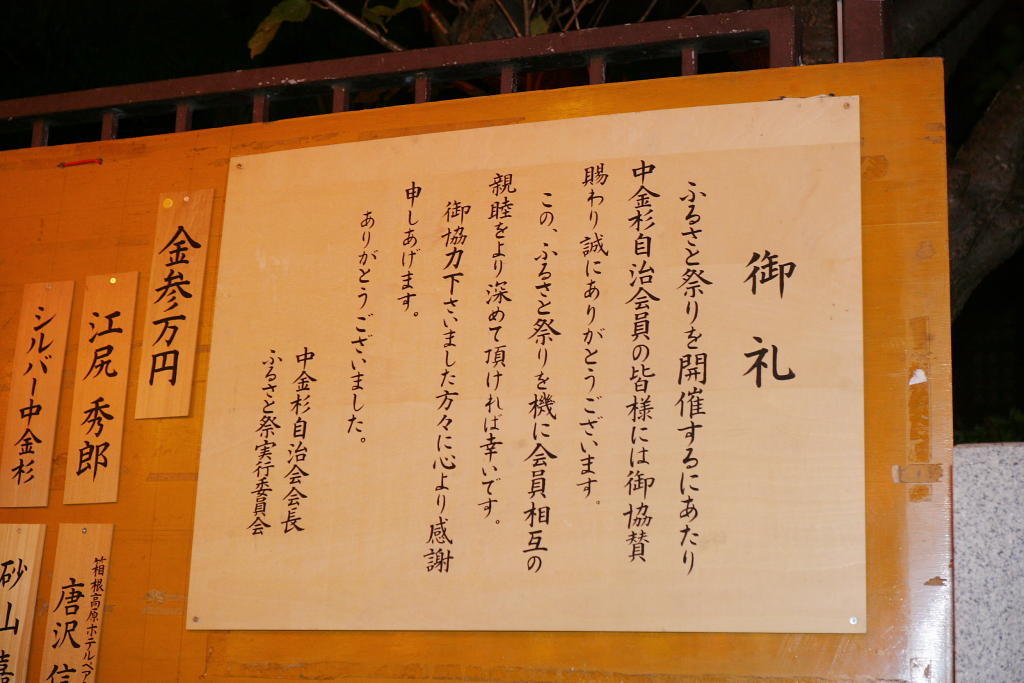 御礼
ふるさと祭りを開催するにあたり
中金杉自治会員の皆様には御協賛
賜わり誠にありがとうございます。
この、ふるさと祭りを機に会員相互の
親睦をより深めて頂ければ幸いです。
御協力下さいました方々に心より感謝
申しあげます。
ありがとうございました。
中金杉自治会会長
ふるさと祭実行委員会
金参万円
江尻秀郎
シルバー中金杉
箱根高原ホテルベア
唐沢信
砂山